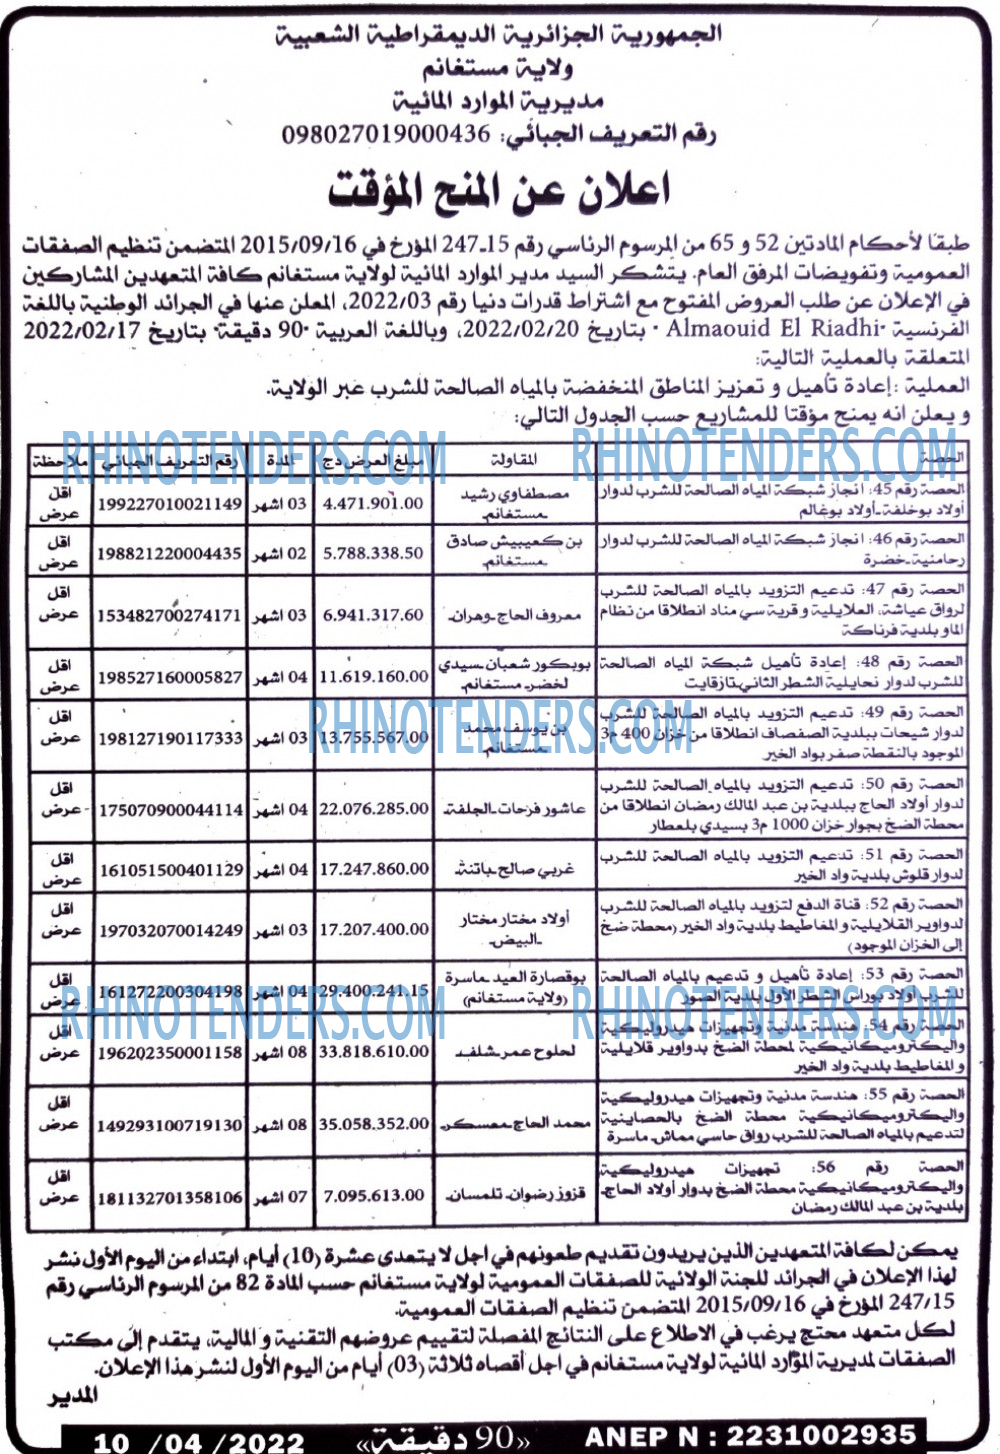 الجمهورية الجزائرية الديمقراطية الشعبية
ولاية مستغانم
مديرية الموارد المائية
رقم التعريف الجبائي: 098027019000436
اعلان عن المنح المؤقت
طبقا لأحكام المادتين 52 و 65 من المرسوم الرئاسي رقم 15-247 المؤرخ في 2015/09/16 المتضمن تنظيم الصفقات
العمومية وتفويضات المرفق العام. يتشكر السيد مدير الموارد المائية لولاية مستغانم كافة المتعهدين المشاركين
في الإعلان عن طلب العروض المفتوح مع اشتراط قدرات دنيا رقم 2022/03، المعلن عنها في الجرائد الوطنية باللغة
الفرنسية "Almaouid El Riadhi" بتاريخ 2022/02/20، وباللغة العربية "90 دقيقة" بتاريخ 2022/02/17
المتعلقة بالعملية التالية:
العملية :إعادة تأهيل و تعزيز المناطق المنخفضة بالمياه الصالحة للشرب عبر الولاية.
و يعلن انه يمنح مؤقتا للمشاريع حسب الجدول التالي:
الحصة المقاولة مبلغ العرض دج المدة رقم التعريف الجبائي ملاحظة
الحصة رقم 45: انجاز شبكة المياه الصالحة للشرب لدوار
أولاد بوخلفة-أولاد بوغالم
مصطفاوي رشيد
-مستغانم-
4.471.901.00 03 اشهر 199227010021149 اقل
عرض
الحصة رقم 46: انجاز شبكة المياه الصالحة للشرب لدوار
رحامنية-خضرة
بن كعيبيش صادق
-مستغانم-
5.788.338.50 02 اشهر 198821220004435 اقل
عرض
الحصة رقم 47: تدعيم التزويد بالمياه الصالحة للشرب
لرواق عياشة، العلايلية و قرية سي مناد انطلاقا من نظام
الماو بلدية فرناكة
معروف الحاج-وهران-
6.941.317.60 03 اشهر 153482700274171 اقل
عرض
الحصة رقم 48: إعادة تأهيل شبكة المياه الصالحة
للشرب لدوار نحايلية الشطر الثاني-تازقايت
بوبكور شعبان-سيدي
لخضر- مستغانم-
11.619.160.00 04 اشهر 198527160005827 اقل
عرض
الحصة رقم 49: تدعيم التزويد بالمياه الصالحة للشرب
لدوار شيحات ببلدية الصفصاف انطلاقا من خزان 400 م3
الموجود بالنقطة صفر بواد الخير
بن يوسف محمد
-مستغانم-
13.755.567.00 03 اشهر 198127190117333 اقل
عرض
الحصة رقم 50: تدعيم التزويد بالمياه الصالحة للشرب
لدوار أولاد الحاج ببلدية بن عبد المالك رمضان انطلاقا من
محطة الضخ بجوار خزان 1000 م3 بسيدي بلعطار
عاشور فرحات-الجلفة-
22.076.285.00 04 اشهر 175070900044114 اقل
عرض
الحصة رقم 51: تدعيم التزويد بالمياه الصالحة للشرب
لدوار قلوش بلدية واد الخير
غربي صالح-باتنة-
17.247.860.00 04 اشهر 161051500401129 اقل
عرض
الحصة رقم 52: قناة الدفع لتزويد بالمياه الصالحة للشرب
لدواوير القلايلية و المغاطيط بلدية واد الخير (محطة ضخ
إلى الخزان الموجود)
أولاد مختار مختار
-البيض-
17.207.400.00 03 اشهر 197032070014249 اقل
عرض
الحصة رقم 53: إعادة تأهيل و تدعيم بالمياه الصالحة
للشرب أولاد بوراس الشطر الأول بلدية الصور
بوقصارة العيد-ماسرة
(ولاية مستغانم)
29.400.241.15 04 اشهر 161272200304198 اقل
عرض
الحصة رقم 54: هندسة مدنية وتجهيزات هيدروليكية
واليكتروميكانيكية لمحطة الضخ بدواوير قلايلية
و المغاطيط بلدية واد الخير
لحلوح عمر-شلف-
33.818.610.00 08 اشهر 196202350001158 اقل
عرض
الحصة رقم 55: هندسة مدنية وتجهيزات هيدروليكية
واليكتروميكانيكية محطة الضخ بالحصاينية
لتدعيم بالمياه الصالحة للشرب رواق حاسي مماش- ماسرة
محمد الحاج-معسكر-
35.058.352.00 08 اشهر 149293100719130 اقل
عرض
الحصة رقم 56: تجهيزات هيدروليكية
واليكتروميكانيكية محطة الضخ بدوار أولاد الحاج-
بلدية بن عبد المالك رمضان
قزوز رضوان- تلمسان-
7.095.613.00 07 اشهر 181132701358106 اقل
عرض
يمكن لكافة المتعهدين الذين يريدون تقديم طعونهم في اجل لا يتعدى عشرة (10) أيام، ابتداء من اليوم الأول نشر
لهذا الإعلان في الجرائد للجنة الولائية للصفقات العمومية لولاية مستغانم حسب المادة 82 من المرسوم الرئاسي رقم
247/15 المؤرخ في 2015/09/16 المتضمن تنظيم الصفقات العمومية.
لكل متعهد محتج يرغب في الاطلاع على النتائج المفصلة لتقييم عروضهم التقنية و المالية، يتقدم إلى مكتب
الصفقات لمديرية المؤارد المائية لولاية مستغانم في اجل أقصاه ثلاثة (03) أيام من اليوم الأول لنشر هذا الإعلان.
المدير
ANEP N : 2231002935 «90 دقيقة» 10 /04 /2022
RHINOTENDERS.COM
RHINOTENDERS.COM
RHINOTENDERS.COM
RHINOTENDERS.COM
RHINOTENDERS.COM